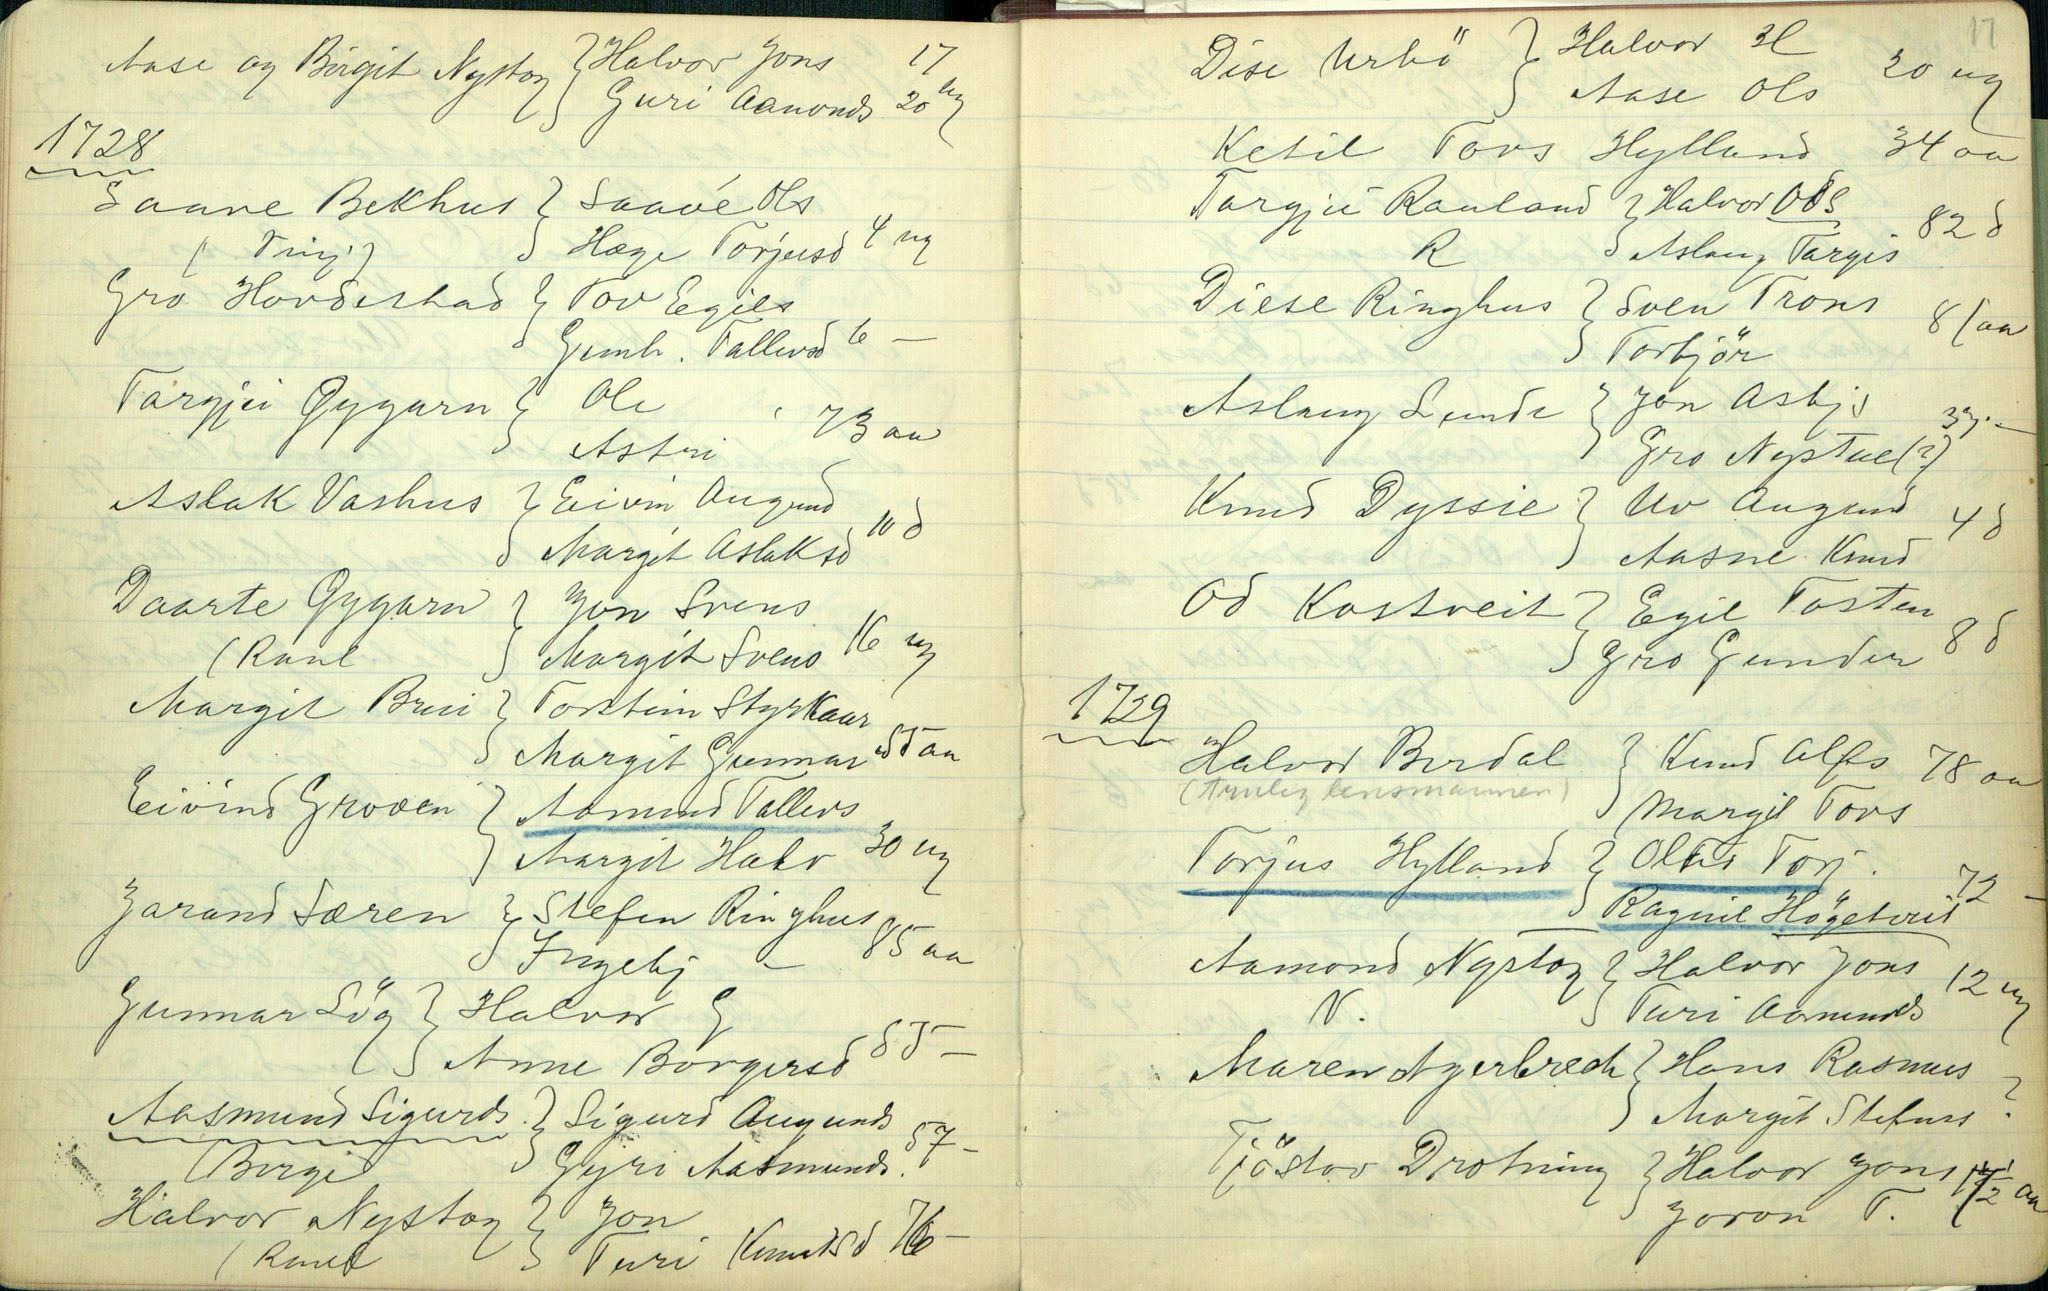 Aase og Birgit Nystog } Halvor Jons 17
Guri Aamonds 20 ug
1728
Saave Bekhus } Saavé Ols
( Vinj ) Hæge Torjusd 4 ug
Gro Hovdestad } Tov Egils
Gunh. Tallevsd 6 —
Targjei Gygarn } Ole 73 aa
Astri
Aslak Vashus } Eivin Augund
Margit Aslaksd 10 d
Daarte Gygarn } Jon Svens
(Raul Margit Svens 16 ug
Margit Brui } Torstein Styrkaar
Margit Gunnar 55 aa
Eivind Groven } Aamund Tallevs
Margit Halv 30 ug
Jarand Særen } Stefen Ringhus
Ingebj — 85 aa
Gunnar Lög } Halvor G
Anne Borgersd 85 —
Aasmund Sigurds. } Sigurd Augunds
(Berge Gyri Aasmunds. 57 —
Halvor Nystog } Jon
(Raul Turi Knutsd 76 —
17
Dise Urbö } Halvor H
Aase Ols 20 ug
Ketil Tovs Hylland 34 aa
Targjei Rauland } Halvor Ols 82 d
R Aslaug Targis
Diese Ringhus } Sven Trons 81 aa
Torbjör
Aslaug Lunde } Jon Asbjs 33 —
Gro Nystue (?)
Knud Dyssie } Uv Augund 4 d
Aasne Knud
Od Kostveit } Egil Tosten
Gro Gunder 8 d
1729
Halvor Berdal } Knud Alfs 78 aa
(truleg lensmannen) Margit Tovs
Torjus Hylland } Olav Torj. 72 —
Ragnil Högetveit
Aamond Nystog } Halvor Jons 12 ug
N. Turi Aamunds
Maren Agerbrech } Hans Rasmus ?
Margit Stefens
Tjöstov Drotning } Halvor Jons 1½ aa
Joron T.